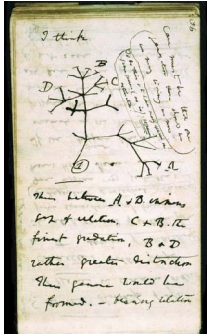 I think
36
Case must be that
D
B
C
A
1
Thus between A & B immense
gap of relation. C & B. the
finest gradation, B & D
rather greater distinction
Thus genera would be
formed. — bearing relation